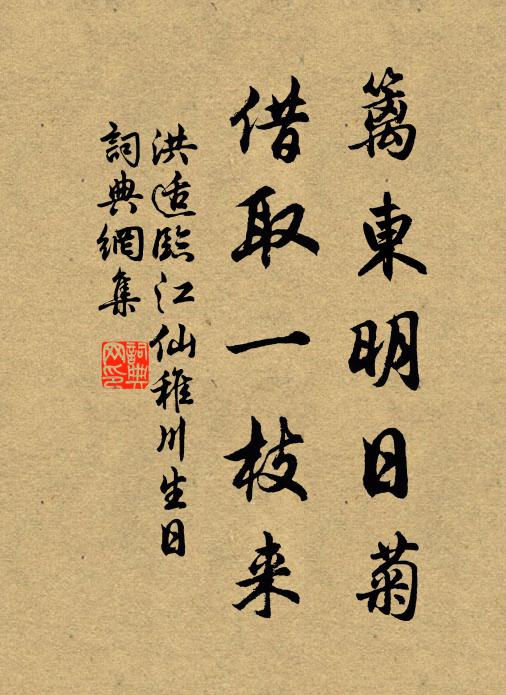 籬東明日菊
借取一枝来
洪适臨江仙稚川生日
詞典網集
詞典
网印